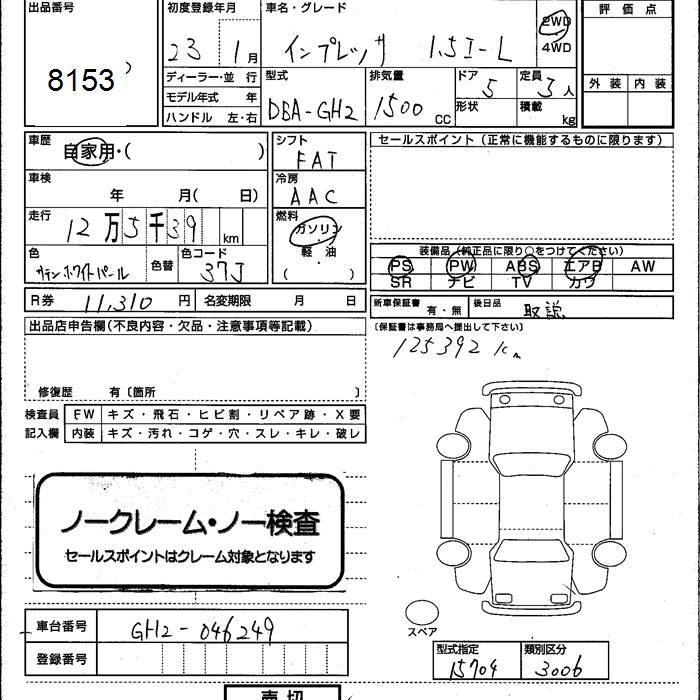 出品番号 初度登録年月 車名・グレード 評価点
8153 23年 1月 インプレッサ 1.5I-L 2WD 4WD
ディーラー・並行 型式 排気量 ドア 定員 外装 内装
モデル年式 年 DBA-GH2 1500 CC 5 5人
ハンドル 左・右 形状 積載 kg
車歴 自家用・( ) シフト FAT セールスポイント(正常に機能するものに限ります)
車検 年 月( 日) 冷房 AAC
走行 12万5千39 km 燃料 ガソリン・軽油 ( )
色 サテンホワイトパール 色替 色コード 37J
装備品(純正品に限り○をつけてください)
PS PW ABS エアB AW
SR ナビ TV カワ
R券 11,310円 名変期限 月 日 新車保証書 有・無 後日品 取説
出品店申告欄(不良内容・欠品・注意事項等記載) (保証書は事務局へ提出して下さい)
125392km
修復歴 有〔箇所 〕
検査員 FW キズ・飛石・ヒビ割・リペア跡・X要
記入欄 内装 キズ・汚れ・コゲ・穴・スレ・キレ・破レ
ノークレーム・ノー検査
セールスポイントはクレーム対象となります
スペア
車台番号 GH2-046249
登録番号
型式指定 類別区分
15704 3006
売切